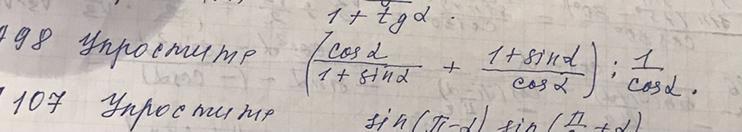 1 + tg α .
98 Упростите ( cos α / 1 + sin α + 1 + sin α / cos α ) : 1 / cos α .
107 Упростите sin (π - α) sin ( π + α)